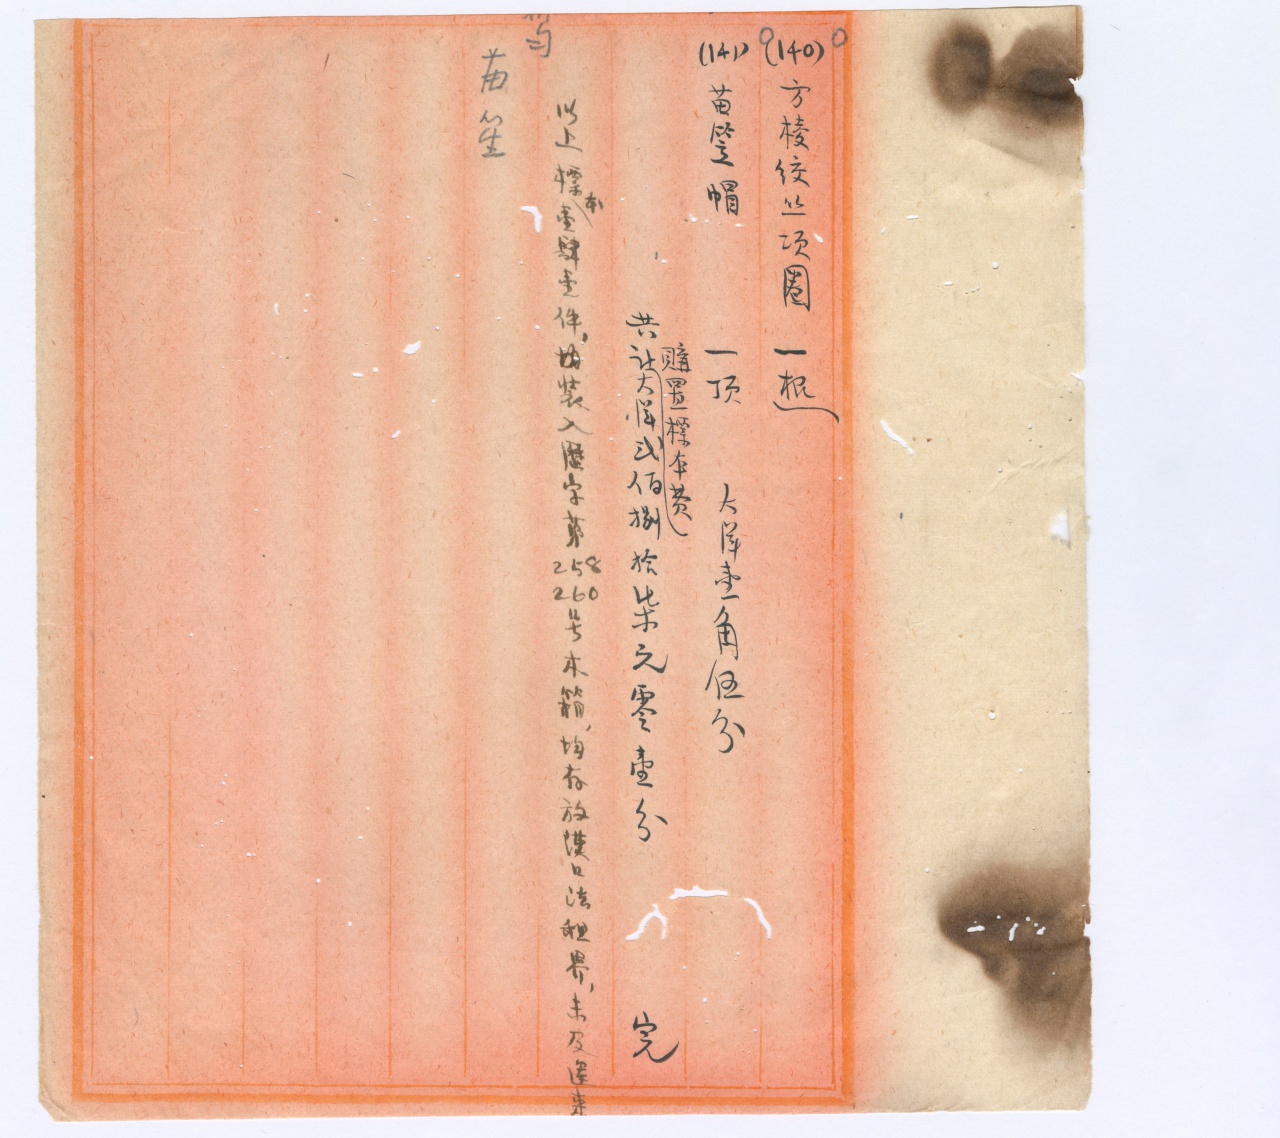 (140) 方棱绞丝项圈 一根
(141) 苗笠帽 一顶 大洋壹角伍分
购置标本费
共计大洋弍佰捌拾柒元零壹分 完
以上標本壹肆壹件,均装入歷字第258 260号木箱,均存放漢口法租界,未及運來
苗笙